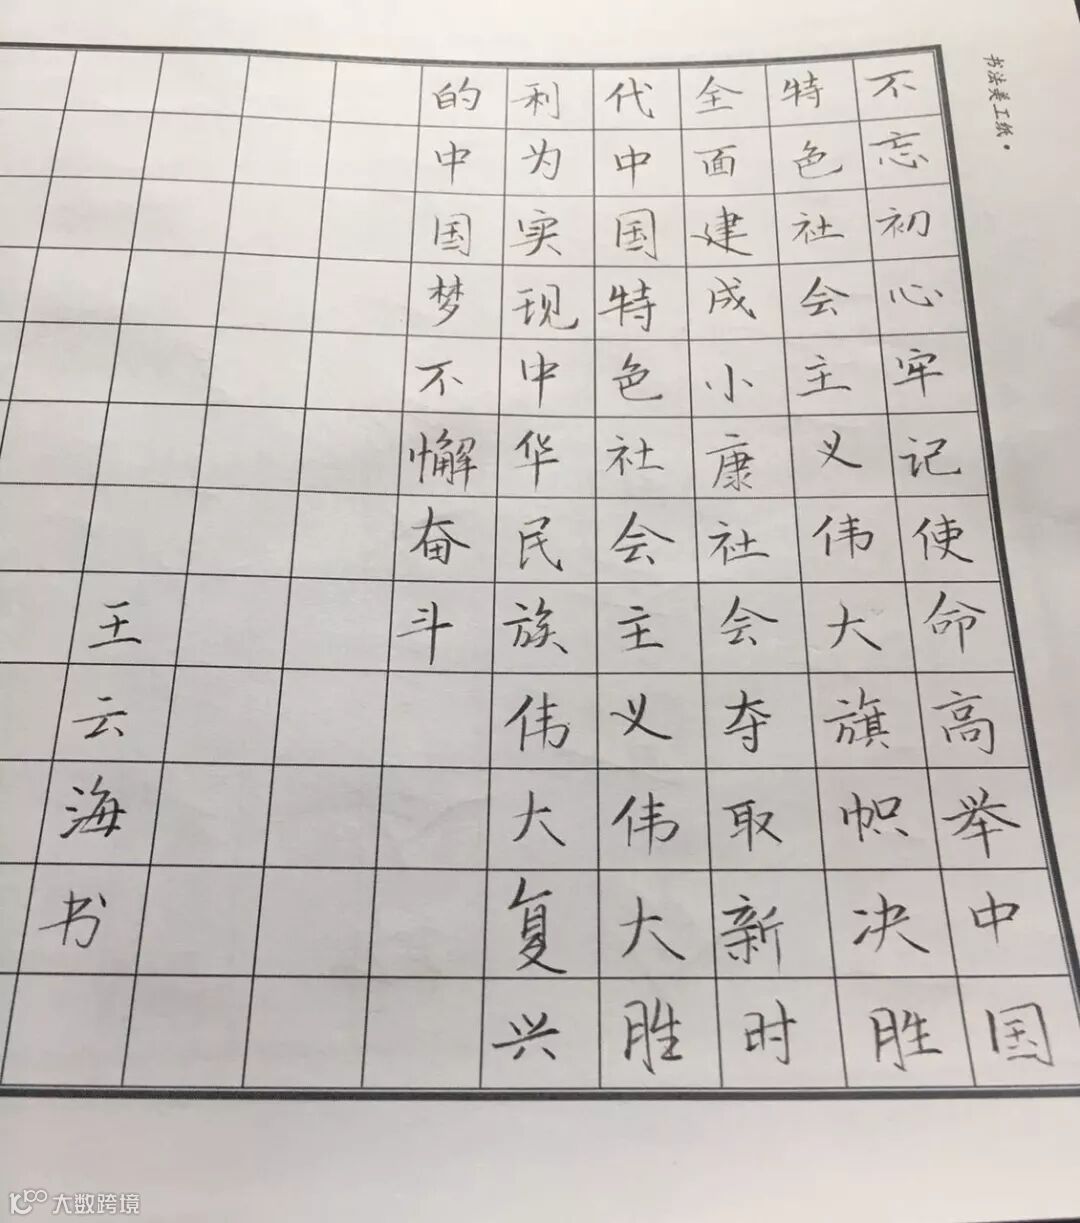 不忘初心牢记使命高举中国
特色社会主义伟大旗帜决胜
全面建成小康社会夺取新时
代中国特色社会主义伟大胜
利为实现中华民族伟大复兴
的中国梦不懈奋斗
王云海书
书法美工纸
大数跨境